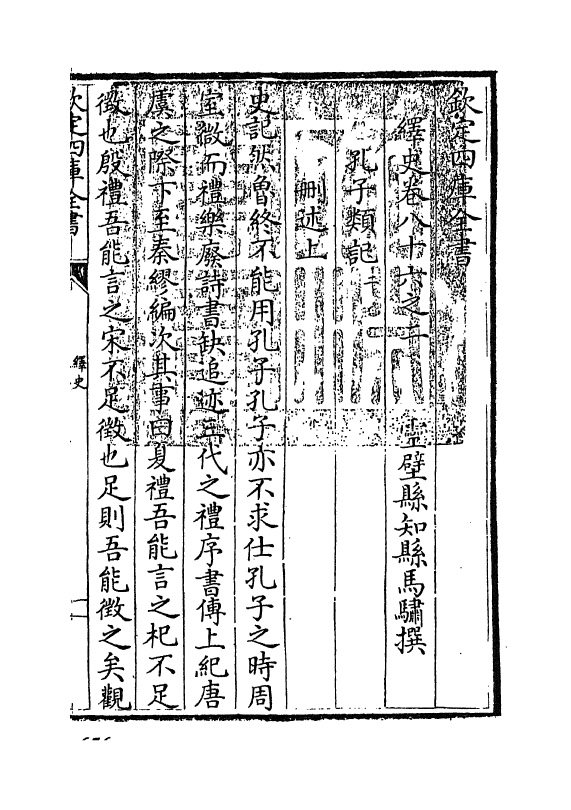 欽定四庫全書
繹史卷八十六之二
靈壁縣知縣馬驌撰
孔子類記二
刪述上
史記然魯終不能用孔子孔子亦不求仕孔子之時周
室微而禮樂廢詩書缺追迹三代之禮序書傳上紀唐
虞之際下至秦繆編次其事曰夏禮吾能言之杞不足
徵也殷禮吾能言之宋不足徵也足則吾能徵之矣觀
欽定四庫全書
繹史
一